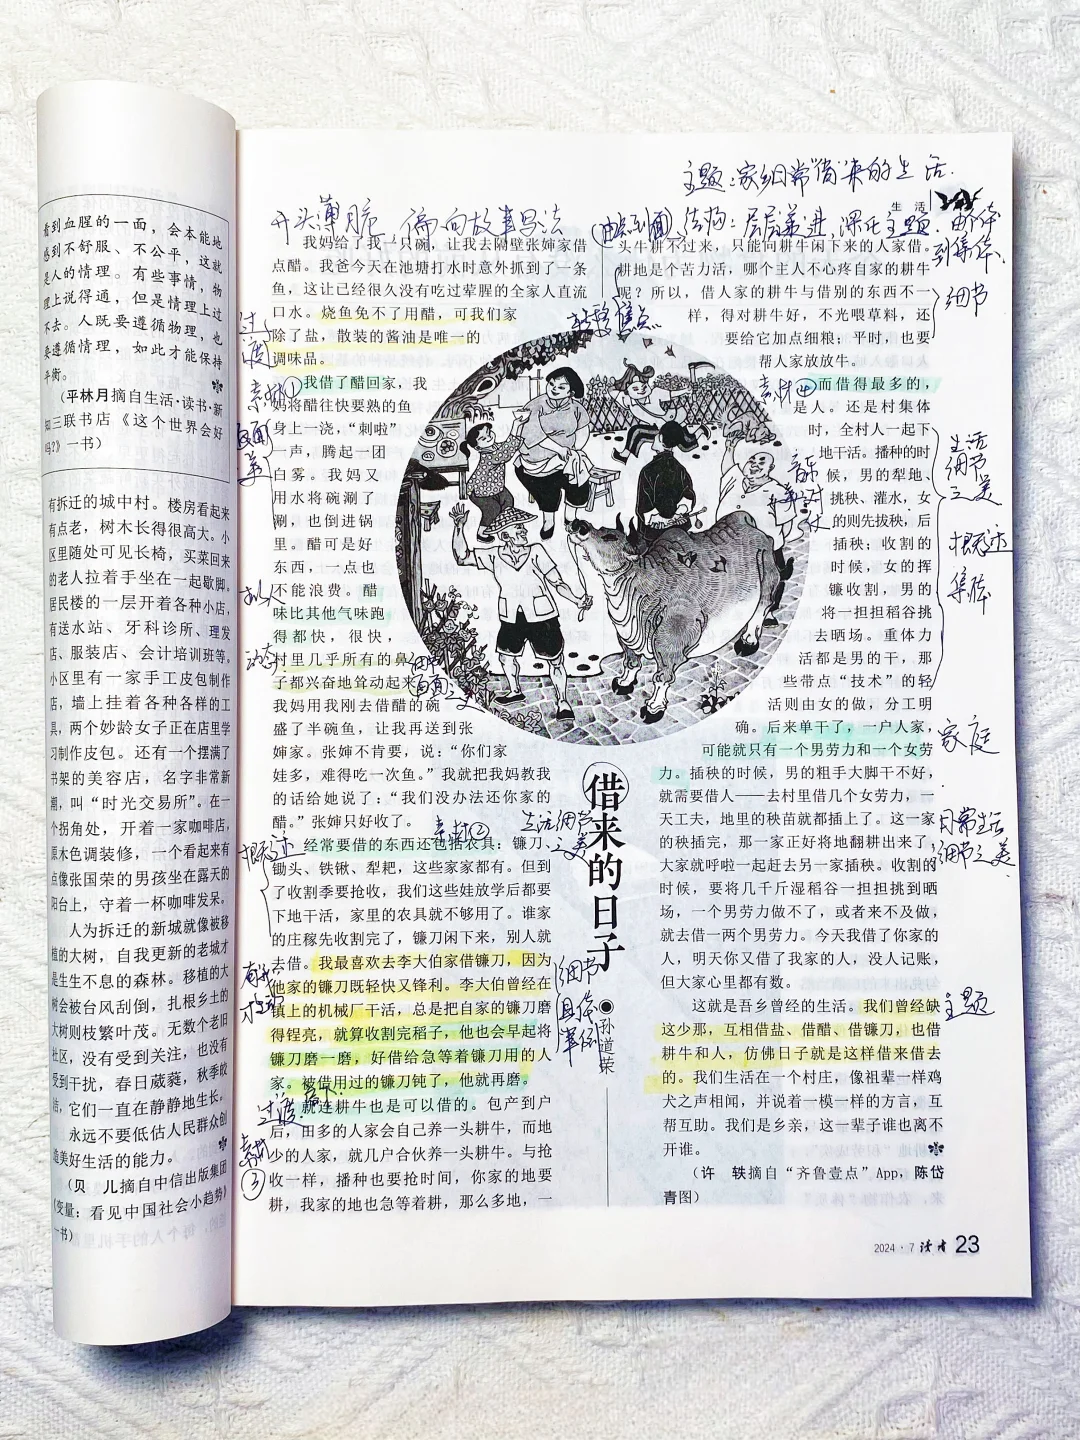 看到血腥的一面，会本能地
感到不舒服、不公平，这就
是人的情理。有些事情，物
理上说得通，但是情理上过
不去。人既要遵循物理，也
要遵循情理，如此才能保持
平衡。
（平林月摘自生活·读书·新
知三联书店《这个世界会好
吗？》一书）
有拆迁的城中村。楼房看起来
有点老，树木长得很高大。小
区里随处可见长椅，买菜回来
的老人拉着手坐在一起歇脚。
居民楼的一层开着各种小店，
有送水站、牙科诊所、理发
店、服装店、会计培训班等。
小区里有一家手工皮包制作
店，墙上挂着各种各样的工
具，两个妙龄女子正在店里学
习制作皮包。还有一个摆满了
书架的美容店，名字非常新
潮，叫“时光交易所”。在一
个拐角处，开着一家咖啡店，
原木色调装修，一个看起来有
点像张国荣的男孩坐在露天的
阳台上，守着一杯咖啡发呆。
人为拆迁的新城就像被移
植的大树，自我更新的老城才
是生生不息的森林。移植的大
树会被台风刮倒，扎根乡土的
大树则枝繁叶茂。无数个老旧
社区，没有受到关注，也没有
受到干扰，春日葳蕤，秋季皎
洁，它们一直在静静地生长。
永远不要低估人民群众创
造美好生活的能力。
（贝 儿摘自中信出版集团
《变量：看见中国社会小趋势》
一书）
主题：家乡日常“借”来的生活
生 活
开头薄脆 偏向故事写法
（由点到面）结构：层层递进，深化主题，由个体
到集体、
我妈给了我一只碗，让我去隔壁张婶家借
点醋。我爸今天在池塘打水时意外抓到了一条
鱼，这让已经很久没有吃过荤腥的全家人直流
口水。烧鱼免不了用醋，可我们家
除了盐，散装的酱油是唯一的
调味品。
过渡
素材①
我借了醋回家，我
妈将醋往快要熟的鱼
身上一浇，“刺啦”
一声，腾起一团
白雾。我妈又
用水将碗涮了
涮，也倒进锅
里。醋可是好
东西，一点也
不能浪费。醋
味比其他气味跑
得都快，很快，
村里几乎所有的鼻
子都兴奋地耸动起来。
我妈用我刚去借醋的碗
盛了半碗鱼，让我再送到张
婶家。张婶不肯要，说：“你们家
娃多，难得吃一次鱼。”我就把我妈教我
的话给她说了：“我们没办法还你家的
醋。”张婶只好收了。
拟人
动态
素材②
生活细节
之美
概述
经常要借的东西还包括农具：镰刀、
锄头、铁锹、犁耙，这些家家都有。但到
了收割季要抢收，我们这些娃放学后都要
下地干活，家里的农具就不够用了。谁家
的庄稼先收割完了，镰刀闲下来，别人就
去借。我最喜欢去李大伯家借镰刀，因为
他家的镰刀既轻快又锋利。李大伯曾经在
镇上的机械厂干活，总是把自家的镰刀磨
得锃亮，就算收割完稻子，他也会早起将
镰刀磨一磨，好借给急等着镰刀用的人
家。被借用过的镰刀钝了，他就再磨。
细节
具体
举例
过渡
素材
③
就连耕牛也是可以借的。包产到户
后，田多的人家会自己养一头耕牛，而地
少的人家，就几户合伙养一头耕牛。与抢
收一样，播种也要抢时间，你家的地要
耕，我家的地也急等着耕，那么多地，一
借来的日子
●孙道荣
头牛耕不过来，只能向耕牛闲下来的人家借。
耕地是个苦力活，哪个主人不心疼自家的耕牛
呢？所以，借人家的耕牛与借别的东西不一
样，得对耕牛好，不光喂草料，还
要给它加点细粮；平时，也要
帮人家放放牛。
细节
素材④
而借得最多的，
是人。还是村集体
时，全村人一起下
地干活。播种的时
候，男的犁地、
挑秧、灌水，女
的则先拔秧，后
插秧；收割的
时候，女的挥
镰收割，男的
将一担担稻谷挑
去晒场。重体力
活都是男的干，那
些带点“技术”的轻
活则由女的做，分工明
确。后来单干了，一户人家，
可能就只有一个男劳力和一个女劳
力。插秧的时候，男的粗手大脚干不好，
就需要借人——去村里借几个女劳力，一
天工夫，地里的秧苗就都插上了。这一家
的秧插完，那一家正好将地翻耕出来了，
大家就呼啦一起赶去另一家插秧。收割的
时候，要将几千斤湿稻谷一担担挑到晒
场，一个男劳力做不了，或者来不及做，
就去借一两个男劳力。今天我借了你家的
人，明天你又借了我家的人，没人记账，
但大家心里都有数。
生活
细节
之美
概述
集体
家庭
日常生活
细节之美
主题
这就是吾乡曾经的生活。我们曾经缺
这少那，互相借盐、借醋、借镰刀，也借
耕牛和人，仿佛日子就是这样借来借去
的。我们生活在一个村庄，像祖辈一样鸡
犬之声相闻，并说着一模一样的方言，互
帮互助。我们是乡亲，这一辈子谁也离不
开谁。
（许 轶摘自“齐鲁壹点”App，陈岱
青图）
2024·7 读者 23